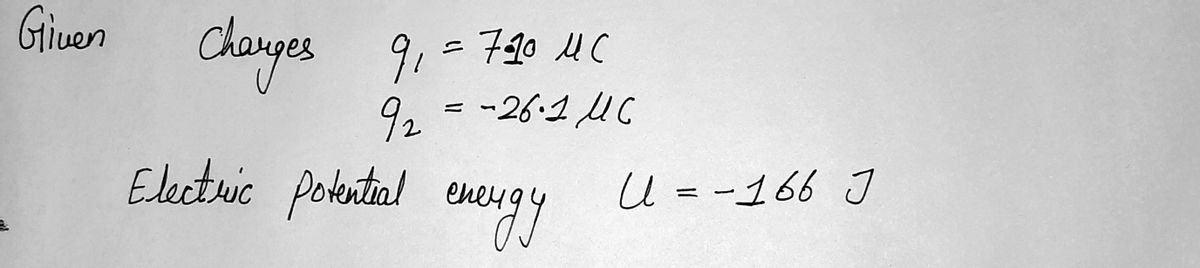 Given Charges q₁ = 7.10 μC
q₂ = -26.1 μC
Electric potential energy U = -166 J